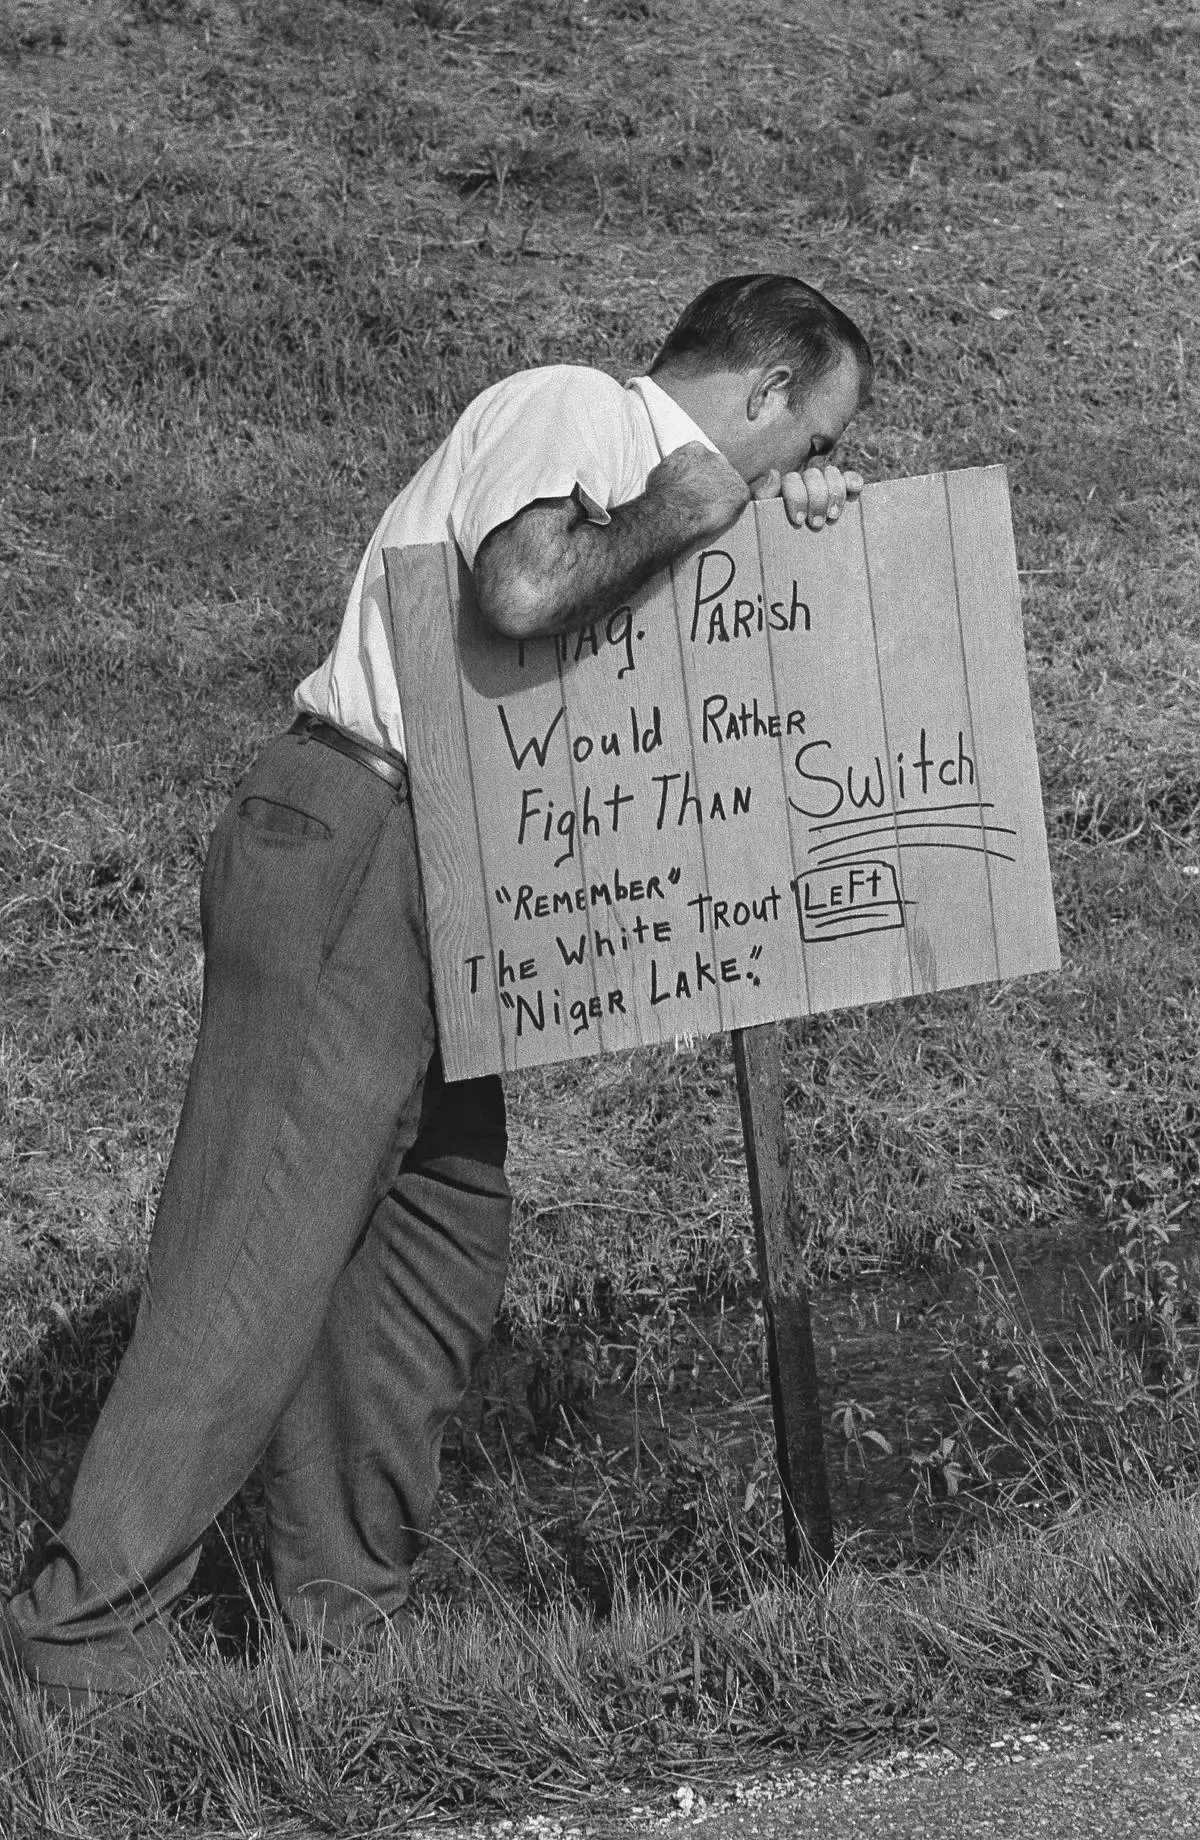 Plaq. Parish
Would Rather
Fight Than Switch
"Remember"
The White Trout Left
"Niger Lake."